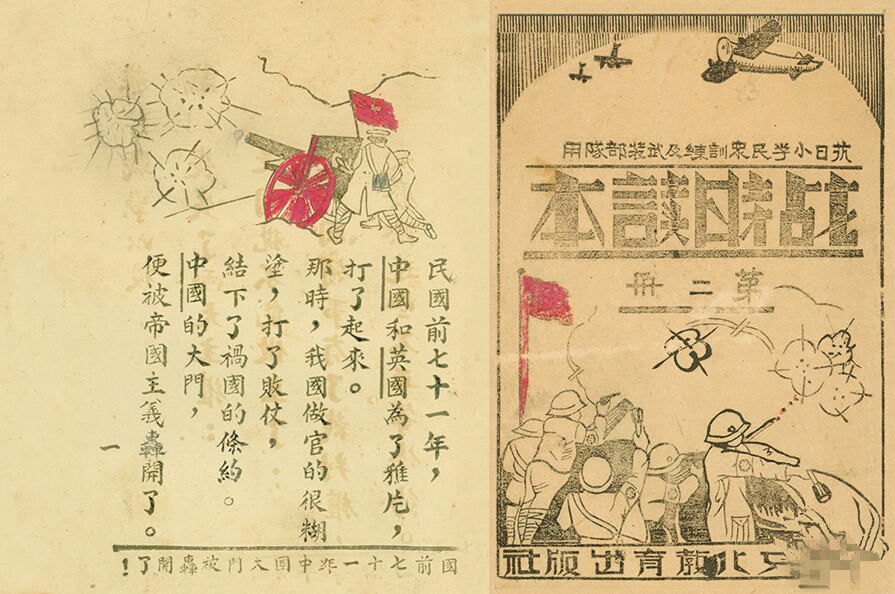 民國前七十一年，
中國和英國為了雅片，
打了起來。
那時，我國做官的很糊
塗，打了敗仗，
結下了禍國的條約。
中國的大門，
便被帝國主義轟開了。
一
國前七十一年中國大門被轟開了！
抗日小学民衆訓練及武裝部隊用
战時讀本
第二冊
北教育出版社